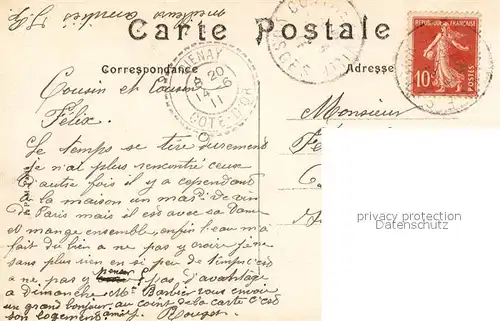 meilleurs amitiés
Carte Postale
Correspondance
Adresse
RÉPUBLIQUE FRANÇAISE
10
20
14 - 6
11
COTE-D'OR
VOSGES
Cousin et Cousine
Félix.
Monsieur
Le temps se tire durement
je n'ai plus rencontré ceux
d'autre fois il y a cependant
à la maison un md de vin
de Paris mais il est avec sa Dame
et mange ensemble, enfin l'eau m'a
fait du bien a ne pas y croire
sans plus rien en si peu de temps c'est
a ne pas y penser pas d'avantage
a Dimanche Mr Barbié vous envoie
un grand bonjour au coin de la carte c'est
son logement amier Rouget
privacy protection
www.ansichtskarten-center.de